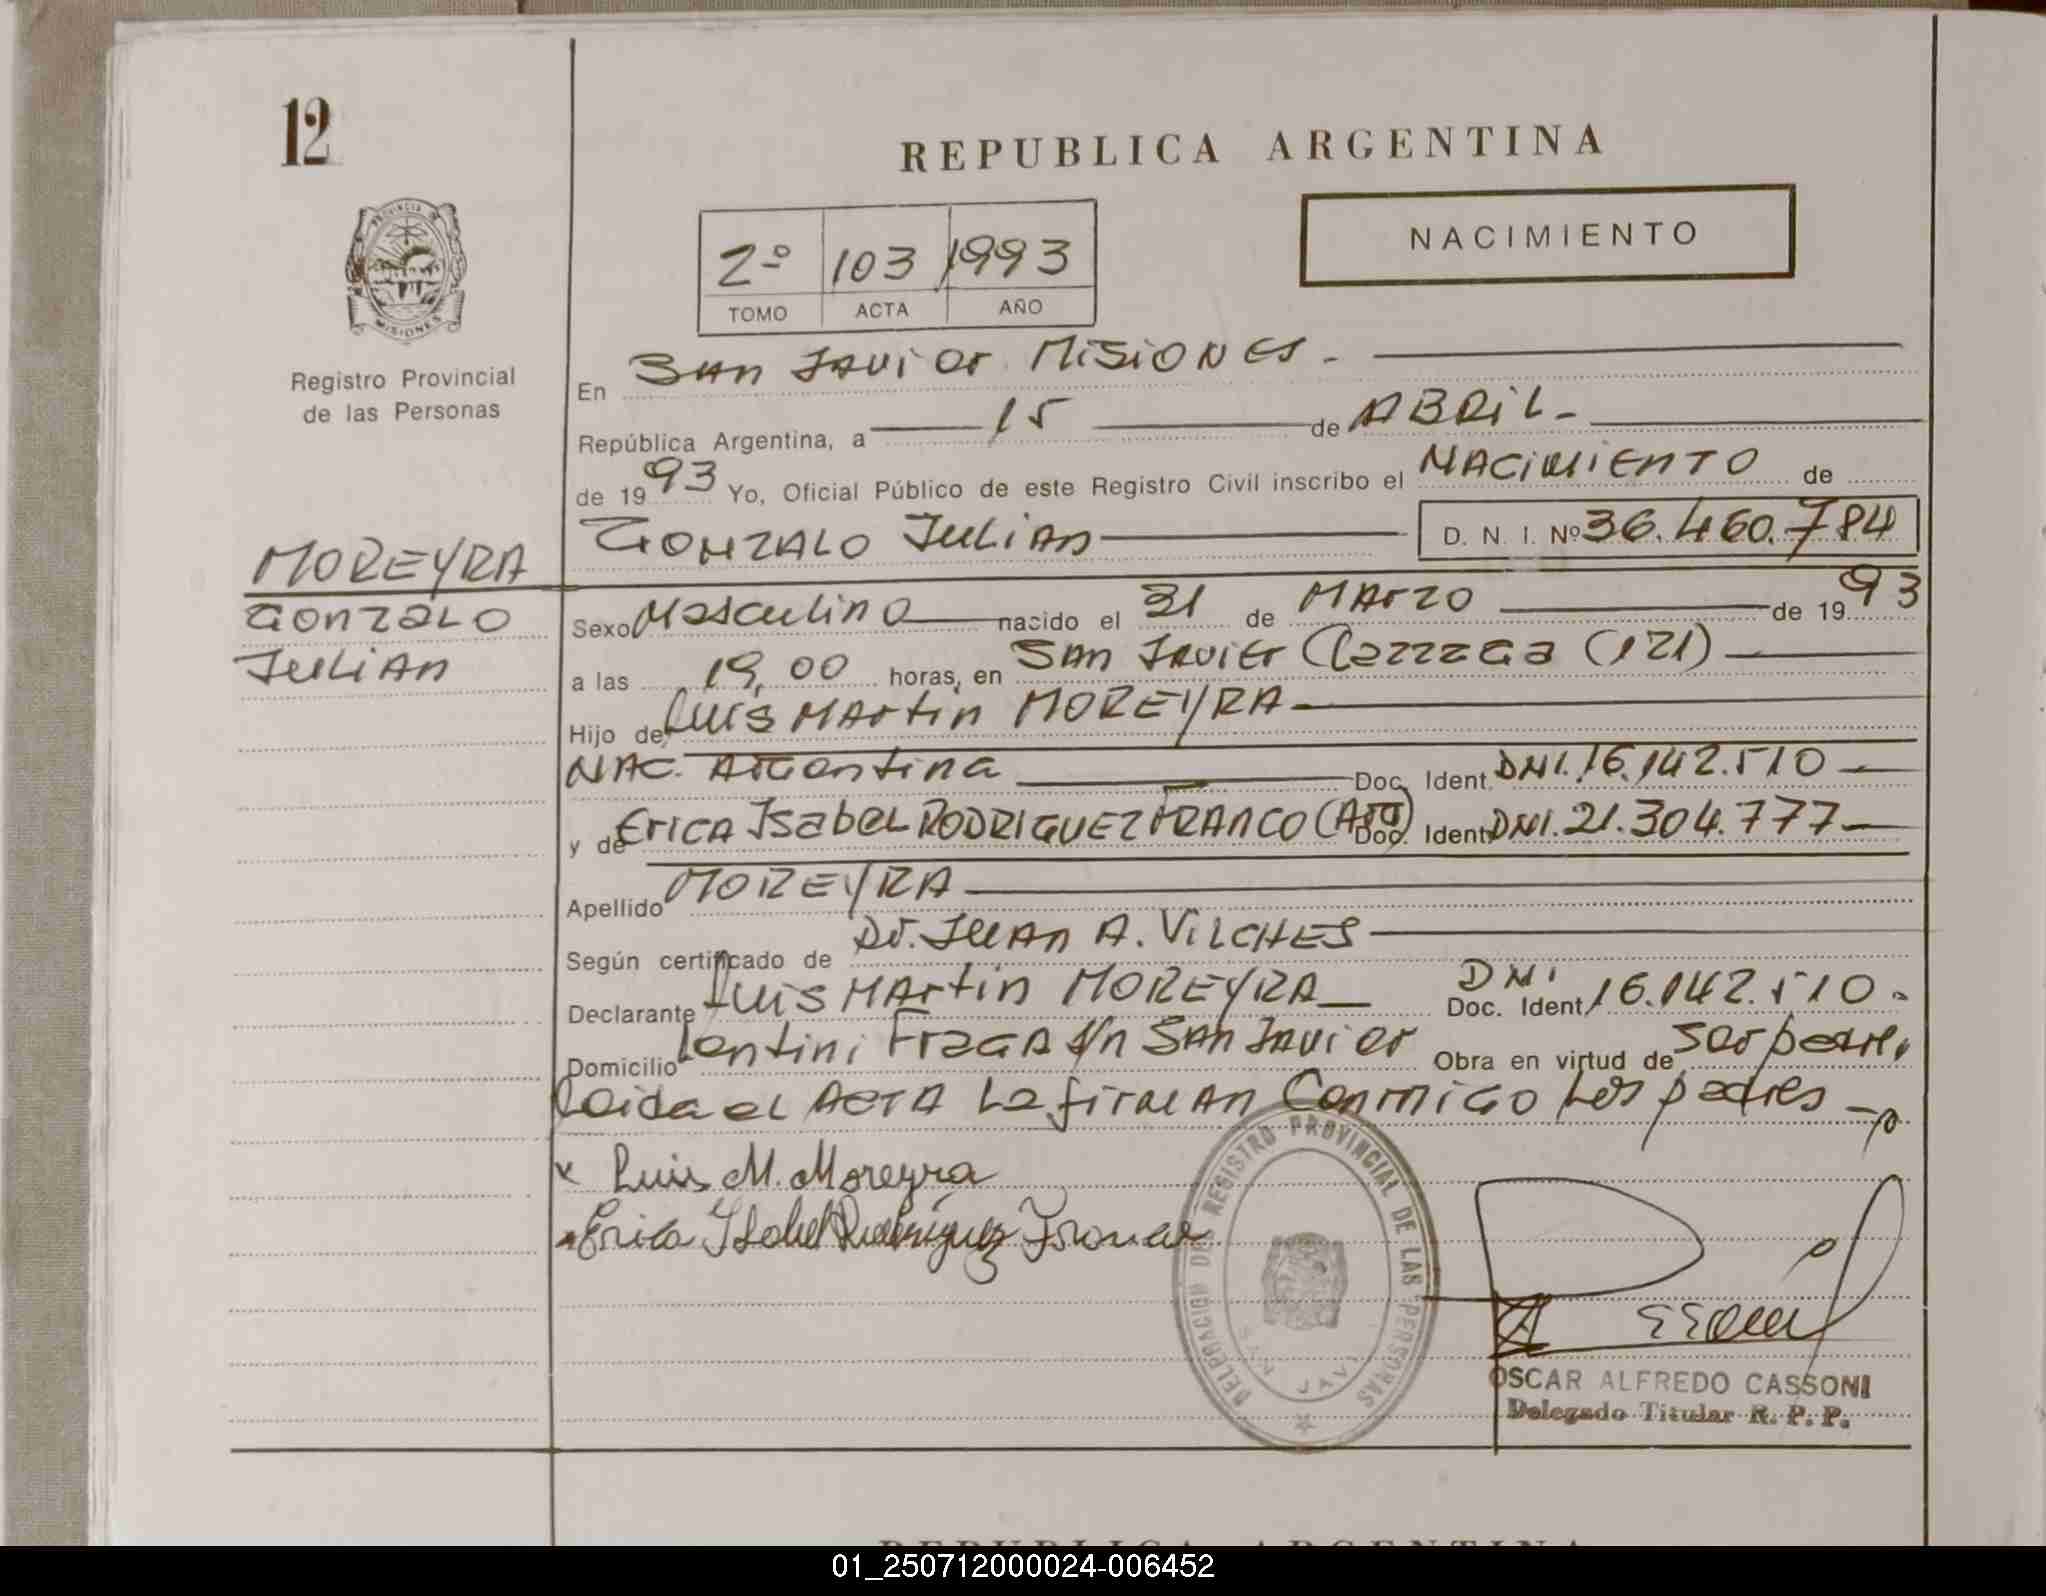 12
REPUBLICA ARGENTINA
NACIMIENTO
2º 103 1993
TOMO ACTA AÑO
PROVINCIA DE
MISIONES
Registro Provincial
de las Personas
En San Javier Misiones.
República Argentina, a 15 de ABRIL
de 1993 Yo, Oficial Público de este Registro Civil inscribo el NACIMIENTO de
GONZALO JULIAN D. N. I. Nº 36.460.784
MOREYRA
GONZALO
JULIAN
Sexo Masculino nacido el 31 de MARZO de 1993
a las 19,00 horas, en San Javier (121)
Hijo de Luis Martin MOREYRA
NAC. Argentina Doc. Ident. DNI. 16.142.510
y de Erica Isabel RODRIGUEZ FRANCO (Arg) Doc. Ident. DNI. 21.304.777
Apellido MOREYRA
Según certificado de Dr. Juan A. VILCHES
Declarante Luis Martin MOREYRA Doc. Ident. DNI 16.142.510.
Domicilio Lentini Fraga s/n San Javier Obra en virtud de ser padre,
Leida el ACTA La firman Conmigo Los padres
x Luis M. Moreyra
Erica Isabel Rodriguez Franco
DELEGACION DEL REGISTRO PROVINCIAL DE LAS PERSONAS
SAN JAVI
OSCAR ALFREDO CASSONI
Delegado Titular R. P. P.
REPUBLICA ARGENTINA
01_250712000024-006452